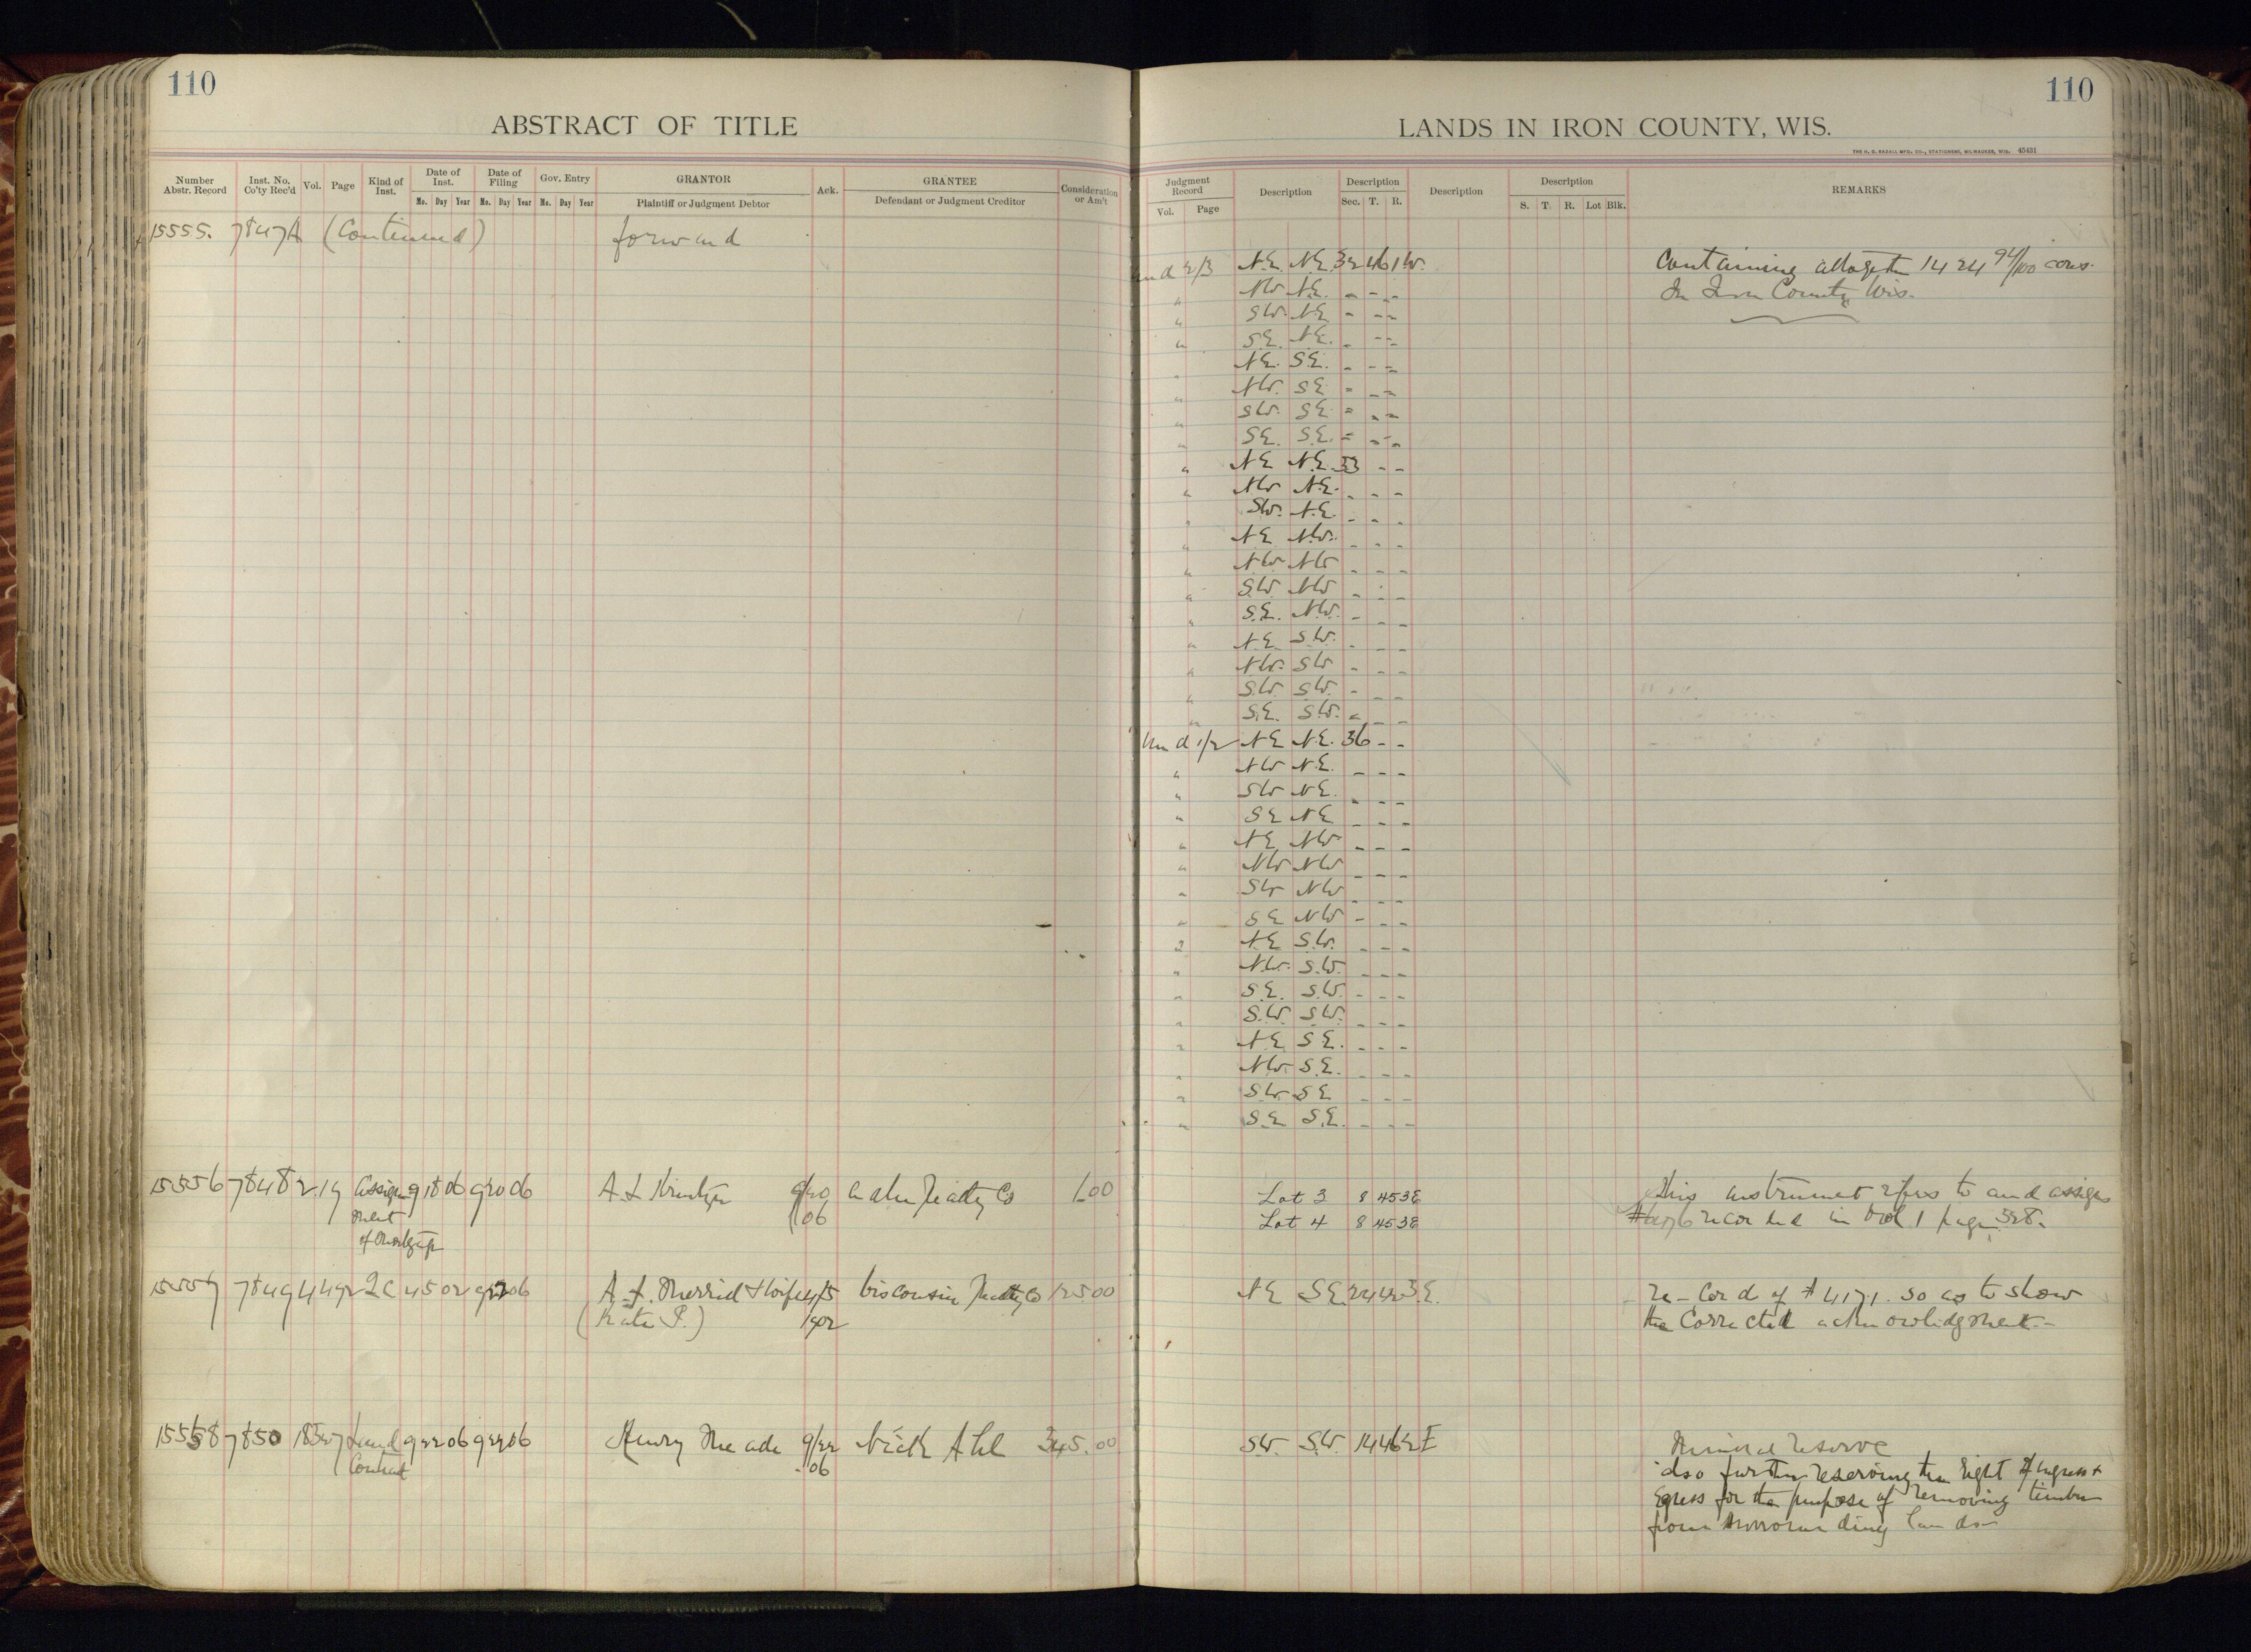 110
ABSTRACT OF TITLE
Number Abstr. Record
Inst. No. Co'ty Rec'd
Vol.
Page
Kind of Inst.
Date of Inst.
Mo. Day Year
Date of Filing
Mo. Day Year
Gov. Entry
Mo. Day Year
GRANTOR
Plaintiff or Judgment Debtor
Ack.
GRANTEE
Defendant or Judgment Creditor
Consideration or Am't
15555. 7847A (Continued) forward
15556 7848 2 19 Assign 9 18 06 9 20 06 A L 9/20 Realty Co 1.00
ment 06
of Mortgage
15557 7849 4 492 2C 4 5 02 9 22 06 A. L. Merrill & wife 4/5 Wisconsin Realty Co 125.00
(Kate P.) 1902
15558 7850 18 Land 9 22 06 9 22 06 Henry Meade 9/22 Nick Ahl 345.00
Contract 06
110
LANDS IN IRON COUNTY, WIS.
THE H. G. RAZALL MFG. CO., STATIONERS, MILWAUKEE, WIS. 45431
Judgment Record
Vol. Page
Description
Description
Sec. T. R.
Description
Description
S. T. R. Lot Blk.
REMARKS
Und 2/3 N.E. N.E. 32 46 1W. Containing altogether 1424 94/100 acres
" NW N.E. - - - In Iron County Wis.
" SW. NE - - -
" S.E. N.E. - - -
" N.E. S.E. - - -
" NW. SE - - -
" SW. SE - - -
" SE. S.E. - - -
" NE N.E. 33 - -
" NW N.E. - - -
" SW. N.E. - - -
" NE NW. - - -
" NW NW - - -
" SW NW - - -
" S.E. NW. - - -
" N.E. SW. - - -
" NW. SW - - -
" S.W. SW. - - -
" S.E. SW. - - -
Und 1/2 NE NE. 36 - -
" NW N.E. - - -
" SW N.E. - - -
" SE NE - - -
" NE NW - - -
" NW NW - - -
" SW NW - - -
" SE NW - - -
" NE S.W. - - -
" N.W. S.W. - - -
" S.E. S.W. - - -
" S.W. S.W. - - -
" N.E. S.E. - - -
" NW. S.E. - - -
" SW SE - - -
" S.E S.E. - - -
Lot 3 8 45 3E This instrument refers to and assigns
Lot 4 8 45 3E recorded in Vol. 1 page 328.
NE SE 24 42 3.E. Re-cord of # 4171. so as to show
the corrected acknowledgment.-
SW. S.W. 14 46 2E Mineral reserve
also further reserving the right of ingress +
Egress for the purpose of removing timber
from surrounding lands-